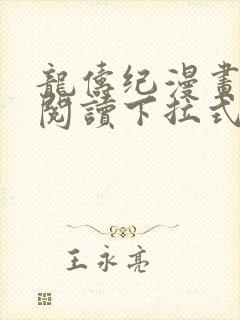 龍傳纪漫畫
閱讀下拉式
王永亮